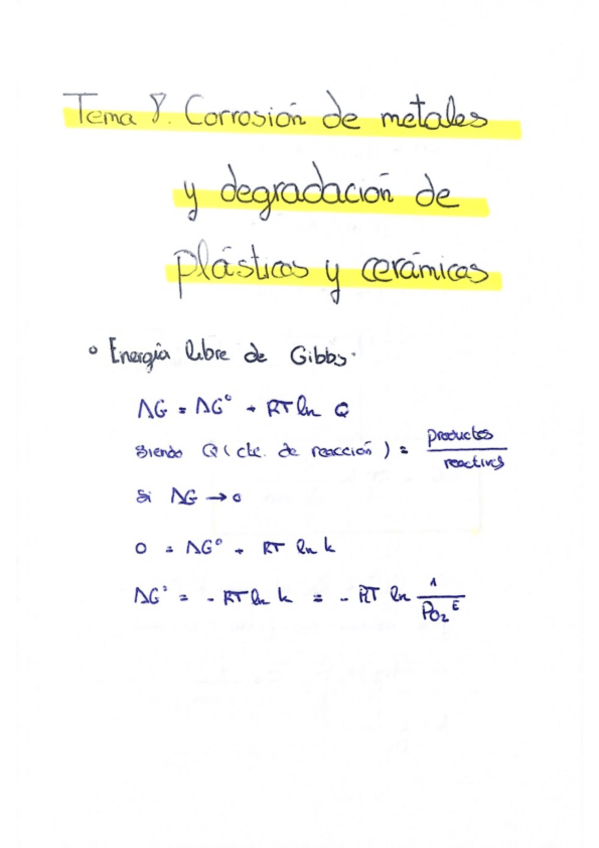 Tema 8. Corrosión de metales
y degradación de
plásticos y cerámicas
° Energía libre de Gibbs.
ΔG = ΔG° + RT ln Q
Siendo Q (cte. de reacción) = productos / reactivos
Si ΔG → 0
0 = ΔG° + RT ln k
ΔG° = - RT ln k = - RT ln 1 / PO₂ᴱ